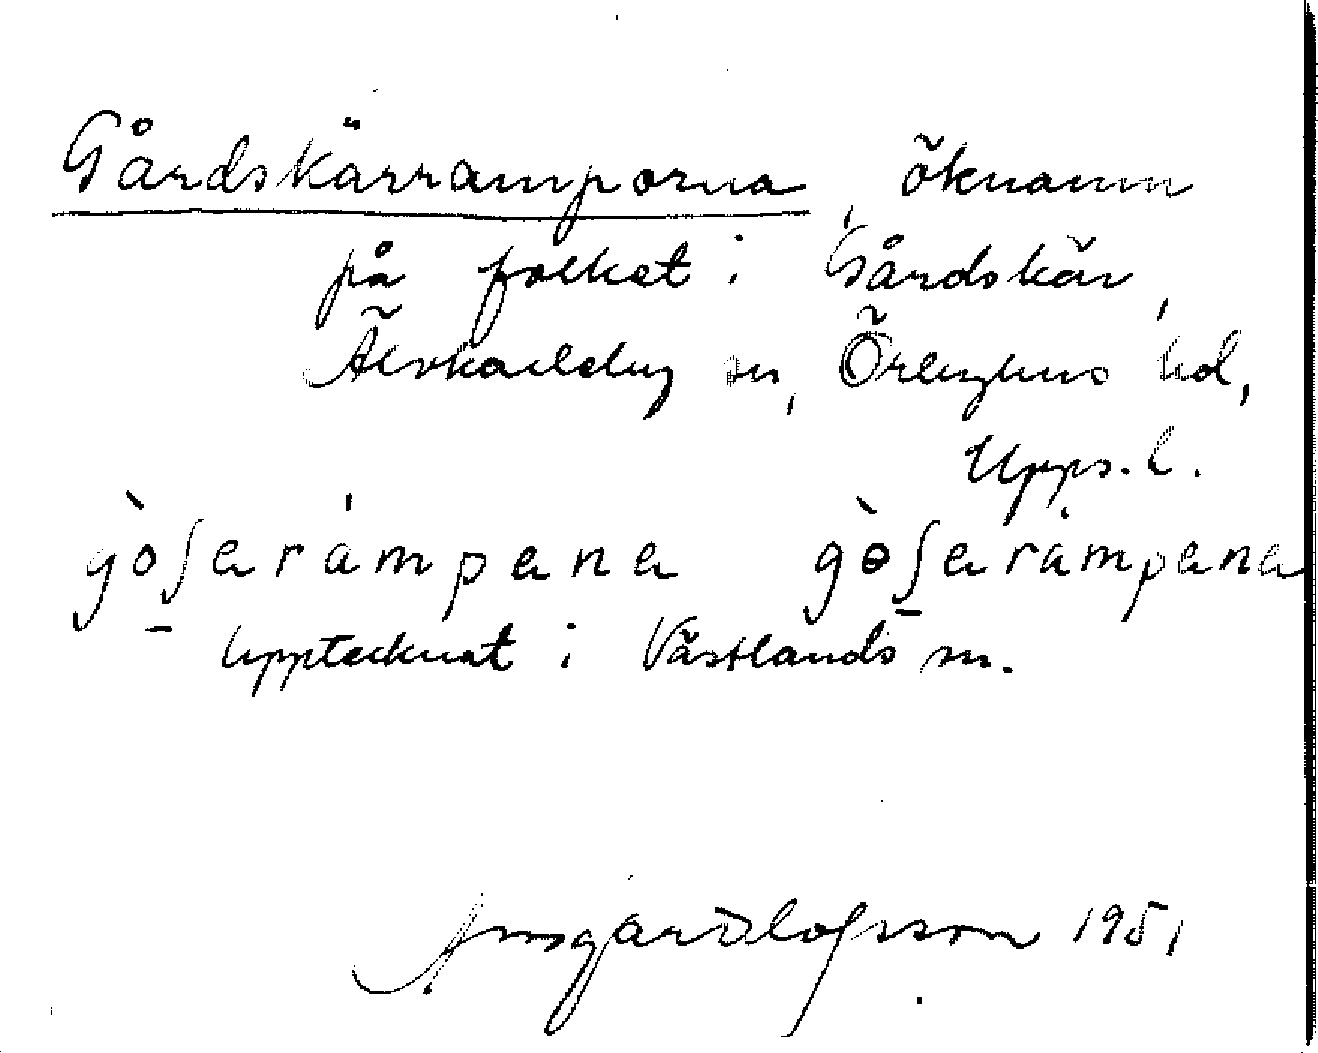 Gårdskärramporna, öknamn
på folket i Gårdskär,
Älvkarleby sn, Örbyhus hd,
Upps. l.
gòʃarámpana gɵ̀ʃarámpana
Upptecknat i Västlands sn.
Ansgar Olofsson 1951